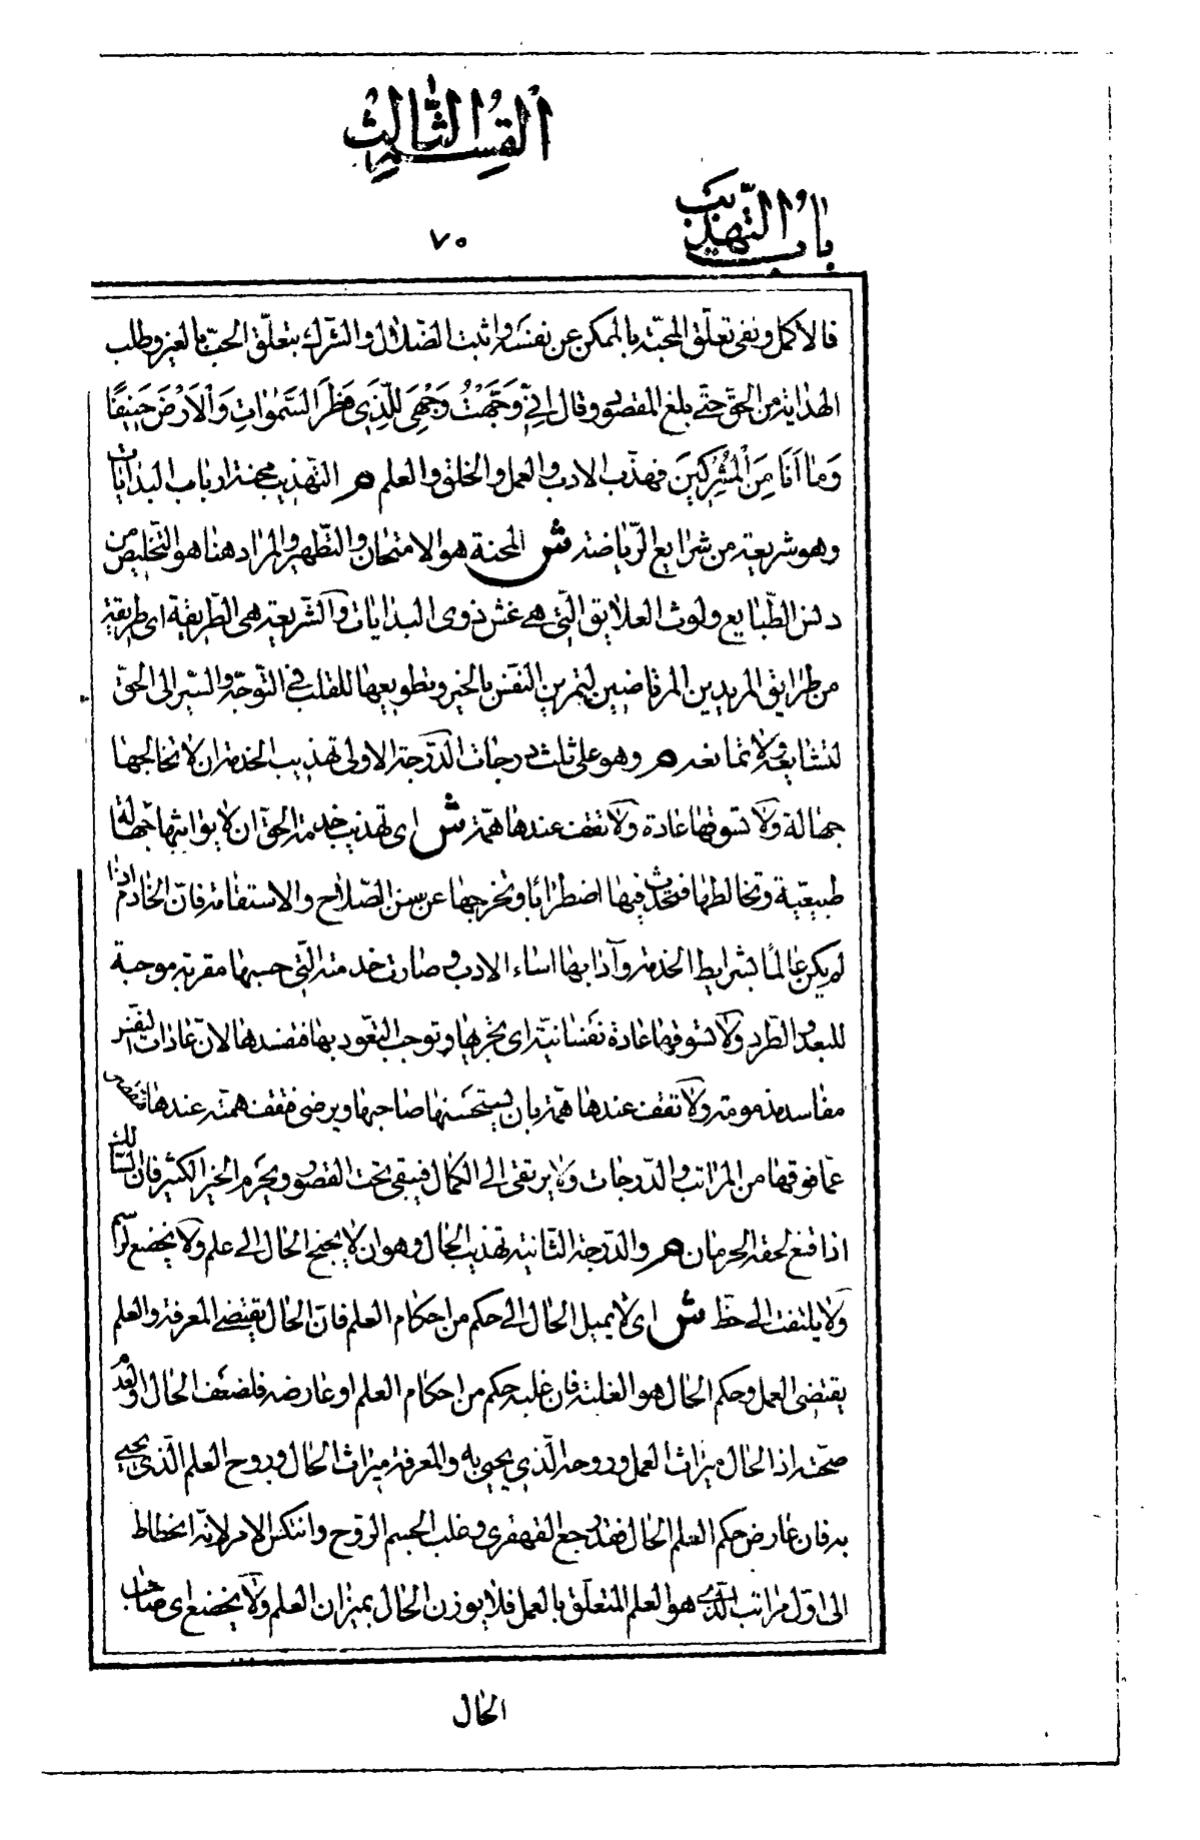 القسم الثالث
باب التهذيب
٧٥
فالاكمل ونفى تعلّق المحبّة بالممكن عن نفسه واثبت الضّلال والشّرك بتعلّق الحبّ بالغير وطلب
الهداية من الحق حتّى بلغ المقصود وقال اِنّى وَجَّهْتُ وَجْهِىَ لِلَّذِى فَطَرَ السَّمٰوَاتِ وَالْاَرْضَ حَنِيفًا
وَمَا اَنَا مِنَ الْمُشْرِكِينَ فهذّب الادب والعمل والخلق والعلم م التّهذيب محنة ارباب البدايات
وهو شريعة من شرايع الرّياضة ش المحنة هو الامتحان والتّطهير والمراد هنا هو التّخليص من
دنس الطّبايع ولوث العلايق الّتى هى غش ذوى البدايات والشّريعة هى الطّريقة اى طريقة
من طرايق المريدين المرتاضين لتمرين النّفس بالخير وتطويعها للقلب فى التّوجّه والسّير الى الحقّ
لتشايعه ولا تمانعه م وهو على ثلث درجات الدّرجة الاولى تهذيب الخدمة ان لا تخالجها
جهالة ولا تسوقها عادة ولا تقف عندها همّة ش اى تهذيب خدمة الحقّ ان لا يواثبها جهالة
طبيعيّة وتخالطها فتحدث فيها اضطرابا وتخرجها عن سنن الصّلاح والاستقامة فانّ الخادم اذا
لم يكن عالمًا بشرايط الخدمة وآدابها اساء الادب وصارت خدمته الّتى حسبها مقربة موجبة
للبعد والطّرد ولا تسوقها عادة نفسانيّة اى يجرّها وتوجب التّعود بها فتفسدها لانّ عادات النّفس
مفاسد مذمومة ولا تقف عندها همّة بان يستحسنها صاحبها ويرضى فتقف همّته عندها فتقصر
عمّا فوقها من المراتب والدّرجات ولا يرتقى الى الكمال فيبقى تحت القصور ويحرم الخير الكثير فانّ السّالك
اذا قنع لحقه الحرمان م والدّرجة الثّانية تهذيب الحال وهو ان لا يجنح الحال الى علم ولا يخضع لرسم
ولا يلتفت الى حظّ ش اى لا يميل الحال الى حكم من احكام العلم فانّ الحال يقتضى المعرفة والعلم
يقتضى العمل وحكم الحال هو الغلبة فان غلبه حكم من احكام العلم او عارضه فلضعف الحال او لعدم
صحّته اذ الحال ميراث العمل وروحه الّذى يحيى به والمعرفة ميراث الحال وروح العلم الّذى يحيى
به فان عارض حكم العلم الحال فقد رجع القهقرى وغلب الجسم الرّوح وانتكس الامر لانّه انحطاط
الى اوّل مراتب الّذى هو العلم المتعلّق بالعمل فلا يوزن الحال بميزان العلم ولا يخضع اى صاحب
الحال